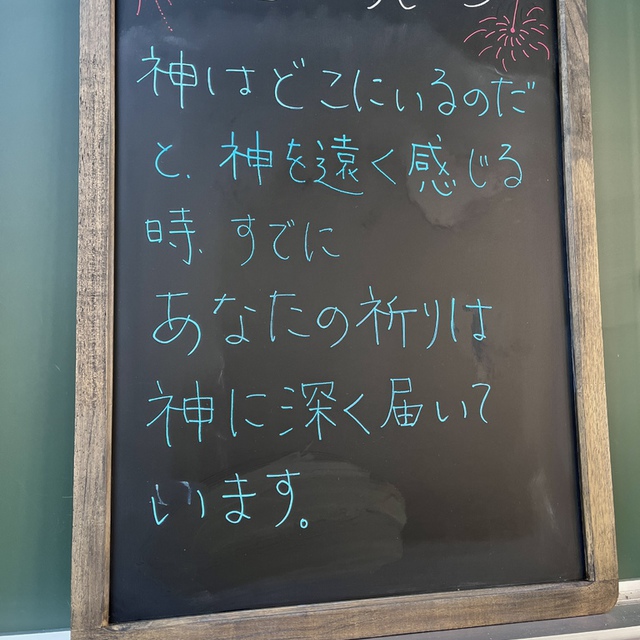 神はどこにいるのだ
と、神を遠く感じる
時、すでに
あなたの祈りは
神に深く届いて
います。